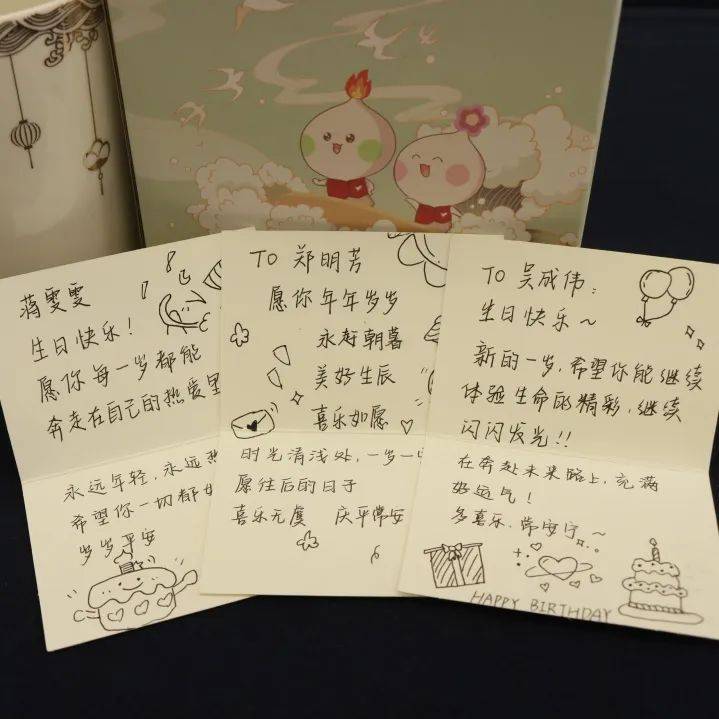 蒋雯雯
生日快乐！
愿你每一岁都能
奔走在自己的热爱里
永远年轻，永远热
希望你一切都如
岁岁平安
TO 郑明芳
愿你年年岁岁
永好朝暮
美好生辰
喜乐如愿
时光清浅处，一岁一
愿往后的日子
喜乐无虞 庆平常安
TO 吴成伟：
生日快乐～
新的一岁，希望你能继续
体验生命的精彩，继续
闪闪发光！！
在奔赴未来路上，充满
好运气！
多喜乐，常安宁～
HAPPY BIRTHDAY